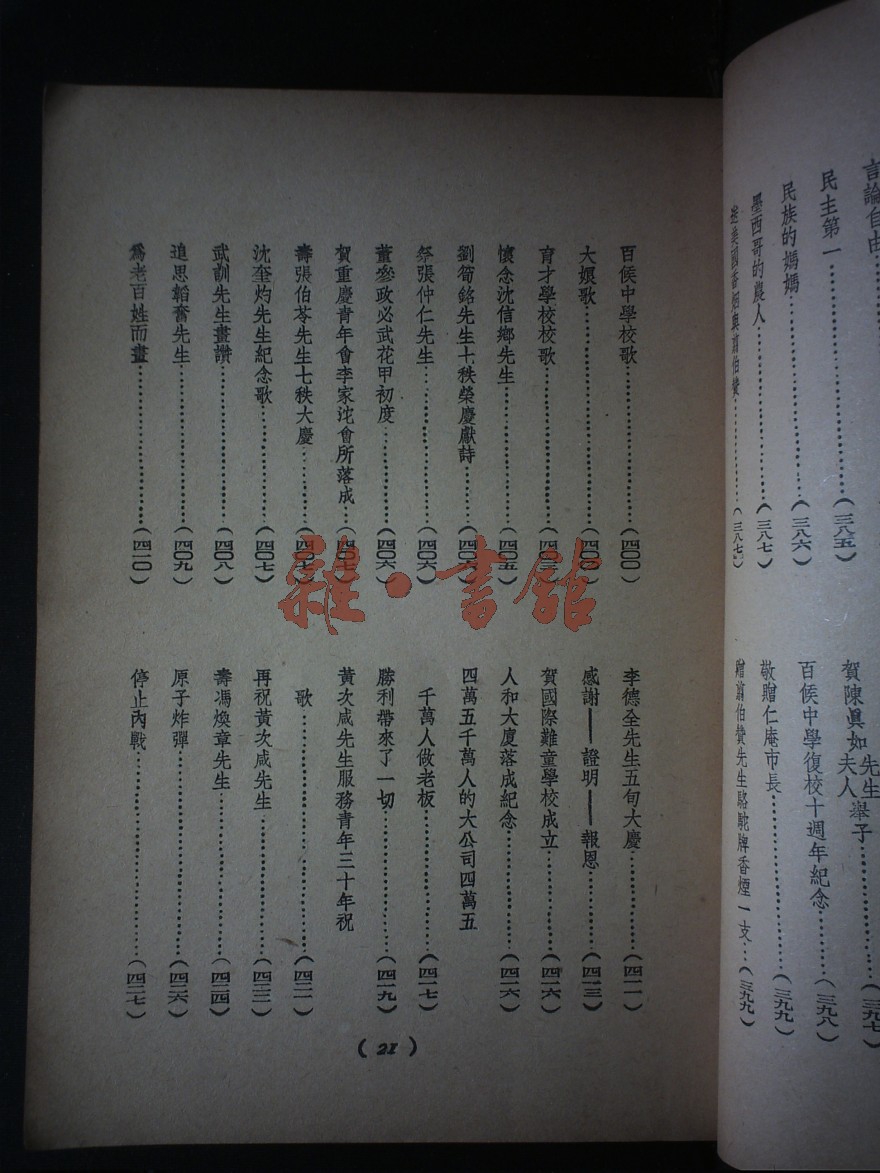 言論自由
民主第一……(三八五)
民族的媽媽……(三八六)
墨西哥的農人……(三八七)
送美國香烟與翦伯贊……(三八七)
先生
賀陳眞如夫人舉子……(三九七)
百侯中學復校十週年紀念……(三九八)
敬贈仁庵市長……(三九九)
贈翦伯贊先生駱駝牌香煙一支…(三九九)
百侯中學校歌……(四〇〇)
大娘歌……(四〇〇)
育才學校校歌……
懷念沈信鄉先生……(四〇五)
劉筍銘先生七秩榮慶獻詩……
祭張仲仁先生……(四〇六)
董參政必武花甲初度……(四〇六)
賀重慶青年會李家沱會所落成…(四〇七)
壽張伯苓先生七秩大慶……(四〇七)
沈奎灼先生紀念歌……(四〇七)
武訓先生畫讚……(四〇八)
追思韜奮先生……(四〇九)
爲老百姓而畫……(四一〇)
李德全先生五旬大慶……(四一一)
感謝——證明——報恩……(四一三)
賀國際難童學校成立……(四一六)
人和大廈落成紀念……(四一六)
四萬五千萬人的大公司四萬五
千萬人做老板……(四一七)
勝利帶來了一切……(四一九)
黃次咸先生服務青年三十年祝
歌……(四二一)
再祝黃次咸先生……(四二三)
壽馮煥章先生……(四二四)
原子炸彈……(四二六)
停止內戰……(四二七)
(21)
雜·書館